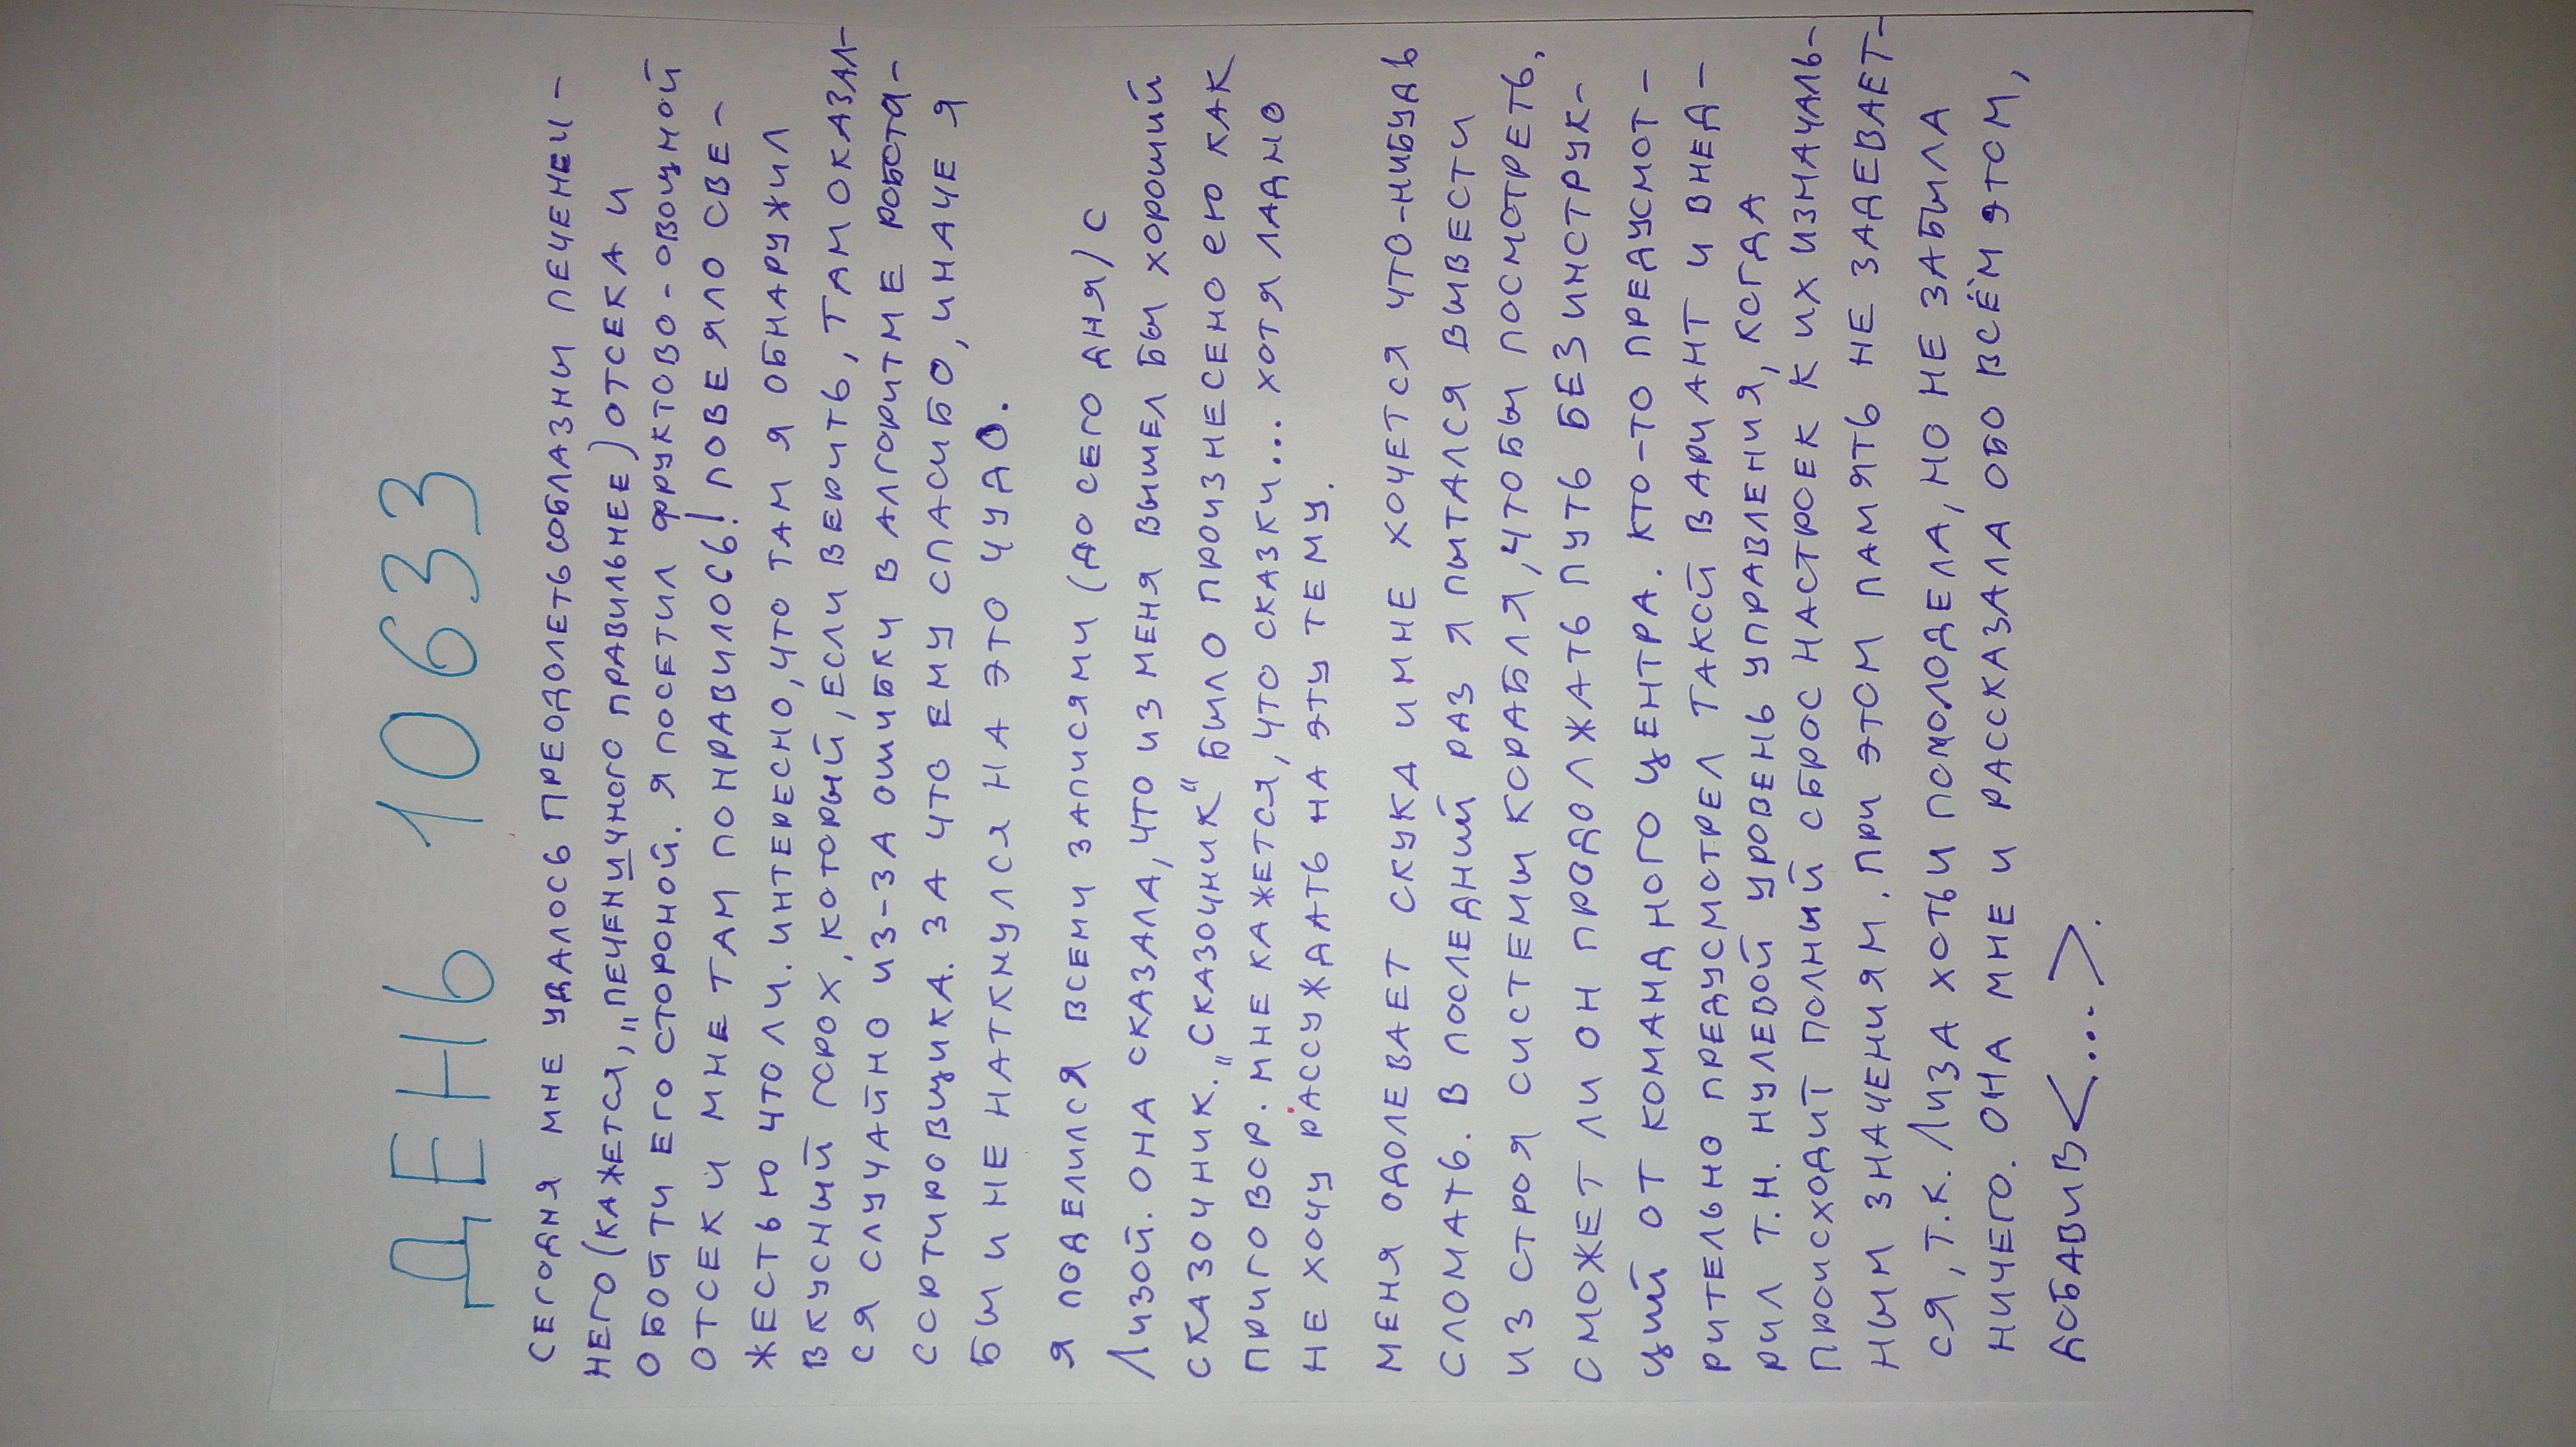 ДЕНЬ 10633
СЕГОДНЯ МНЕ УДАЛОСЬ ПРЕОДОЛЕТЬ СОБЛАЗНЫ ПЕЧЕНЕЧ-
НЕГО (КАЖЕТСЯ, „ПЕЧЕНИЧНОГО ПРАВИЛЬНЕЕ) ОТСЕКА И
ОБОЙТИ ЕГО СТОРОНОЙ. Я ПОСЕТИЛ ФРУКТОВО-ОВОЩНОЙ
ОТСЕК И МНЕ ТАМ ПОНРАВИЛОСЬ! ПОВЕЯЛО СВЕ-
ЖЕСТЬЮ ЧТО ЛИ. ИНТЕРЕСНО, ЧТО ТАМ Я ОБНАРУЖИЛ
ВКУСНЫЙ ГОРОХ, КОТОРЫЙ, ЕСЛИ ВЕРИТЬ, ТАМ ОКАЗАЛ-
СЯ СЛУЧАЙНО ИЗ-ЗА ОШИБКИ В АЛГОРИТМЕ РОБОТА-
СОРТИРОВЩИКА. ЗА ЧТО ЕМУ СПАСИБО, ИНАЧЕ Я
БЫ И НЕ НАТКНУЛСЯ НА ЭТО ЧУДО.
Я ПОДЕЛИЛСЯ ВСЕМИ ЗАПИСЯМИ (ДО СЕГО ДНЯ) С
ЛИЗОЙ. ОНА СКАЗАЛА, ЧТО ИЗ МЕНЯ ВЫШЕЛ БЫ ХОРОШИЙ
СКАЗОЧНИК. „СКАЗОЧНИК" БЫЛО ПРОИЗНЕСЕНО ЕЮ КАК
ПРИГОВОР. МНЕ КАЖЕТСЯ, ЧТО СКАЗКИ... ХОТЯ ЛАДНО
НЕ ХОЧУ РАССУЖДАТЬ НА ЭТУ ТЕМУ.
МЕНЯ ОДОЛЕВАЕТ СКУКА И МНЕ ХОЧЕТСЯ ЧТО-НИБУДЬ
СЛОМАТЬ. В ПОСЛЕДНИЙ РАЗ Я ПЫТАЛСЯ ВЫВЕСТИ
ИЗ СТРОЯ СИСТЕМЫ КОРАБЛЯ, ЧТОБЫ ПОСМОТРЕТЬ,
СМОЖЕТ ЛИ ОН ПРОДОЛЖАТЬ ПУТЬ БЕЗ ИНСТРУК-
ЦИЙ ОТ КОМАНДНОГО ЦЕНТРА. КТО-ТО ПРЕДУСМОТ-
РИТЕЛЬНО ПРЕДУСМОТРЕЛ ТАКОЙ ВАРИАНТ И ВНЕД-
РИЛ Т.Н. НУЛЕВОЙ УРОВЕНЬ УПРАВЛЕНИЯ, КОГДА
ПРОИСХОДИТ ПОЛНЫЙ СБРОС НАСТРОЕК К ИХ ИЗНАЧАЛЬ-
НЫМ ЗНАЧЕНИЯМ. ПРИ ЭТОМ ПАМЯТЬ НЕ ЗАДЕВАЕТ-
СЯ, Т.К. ЛИЗА ХОТЬ И ПОМОЛОДЕЛА, НО НЕ ЗАБЫЛА
НИЧЕГО. ОНА МНЕ И РАССКАЗАЛА ОБО ВСЁМ ЭТОМ,
ДОБАВИВ <...>.